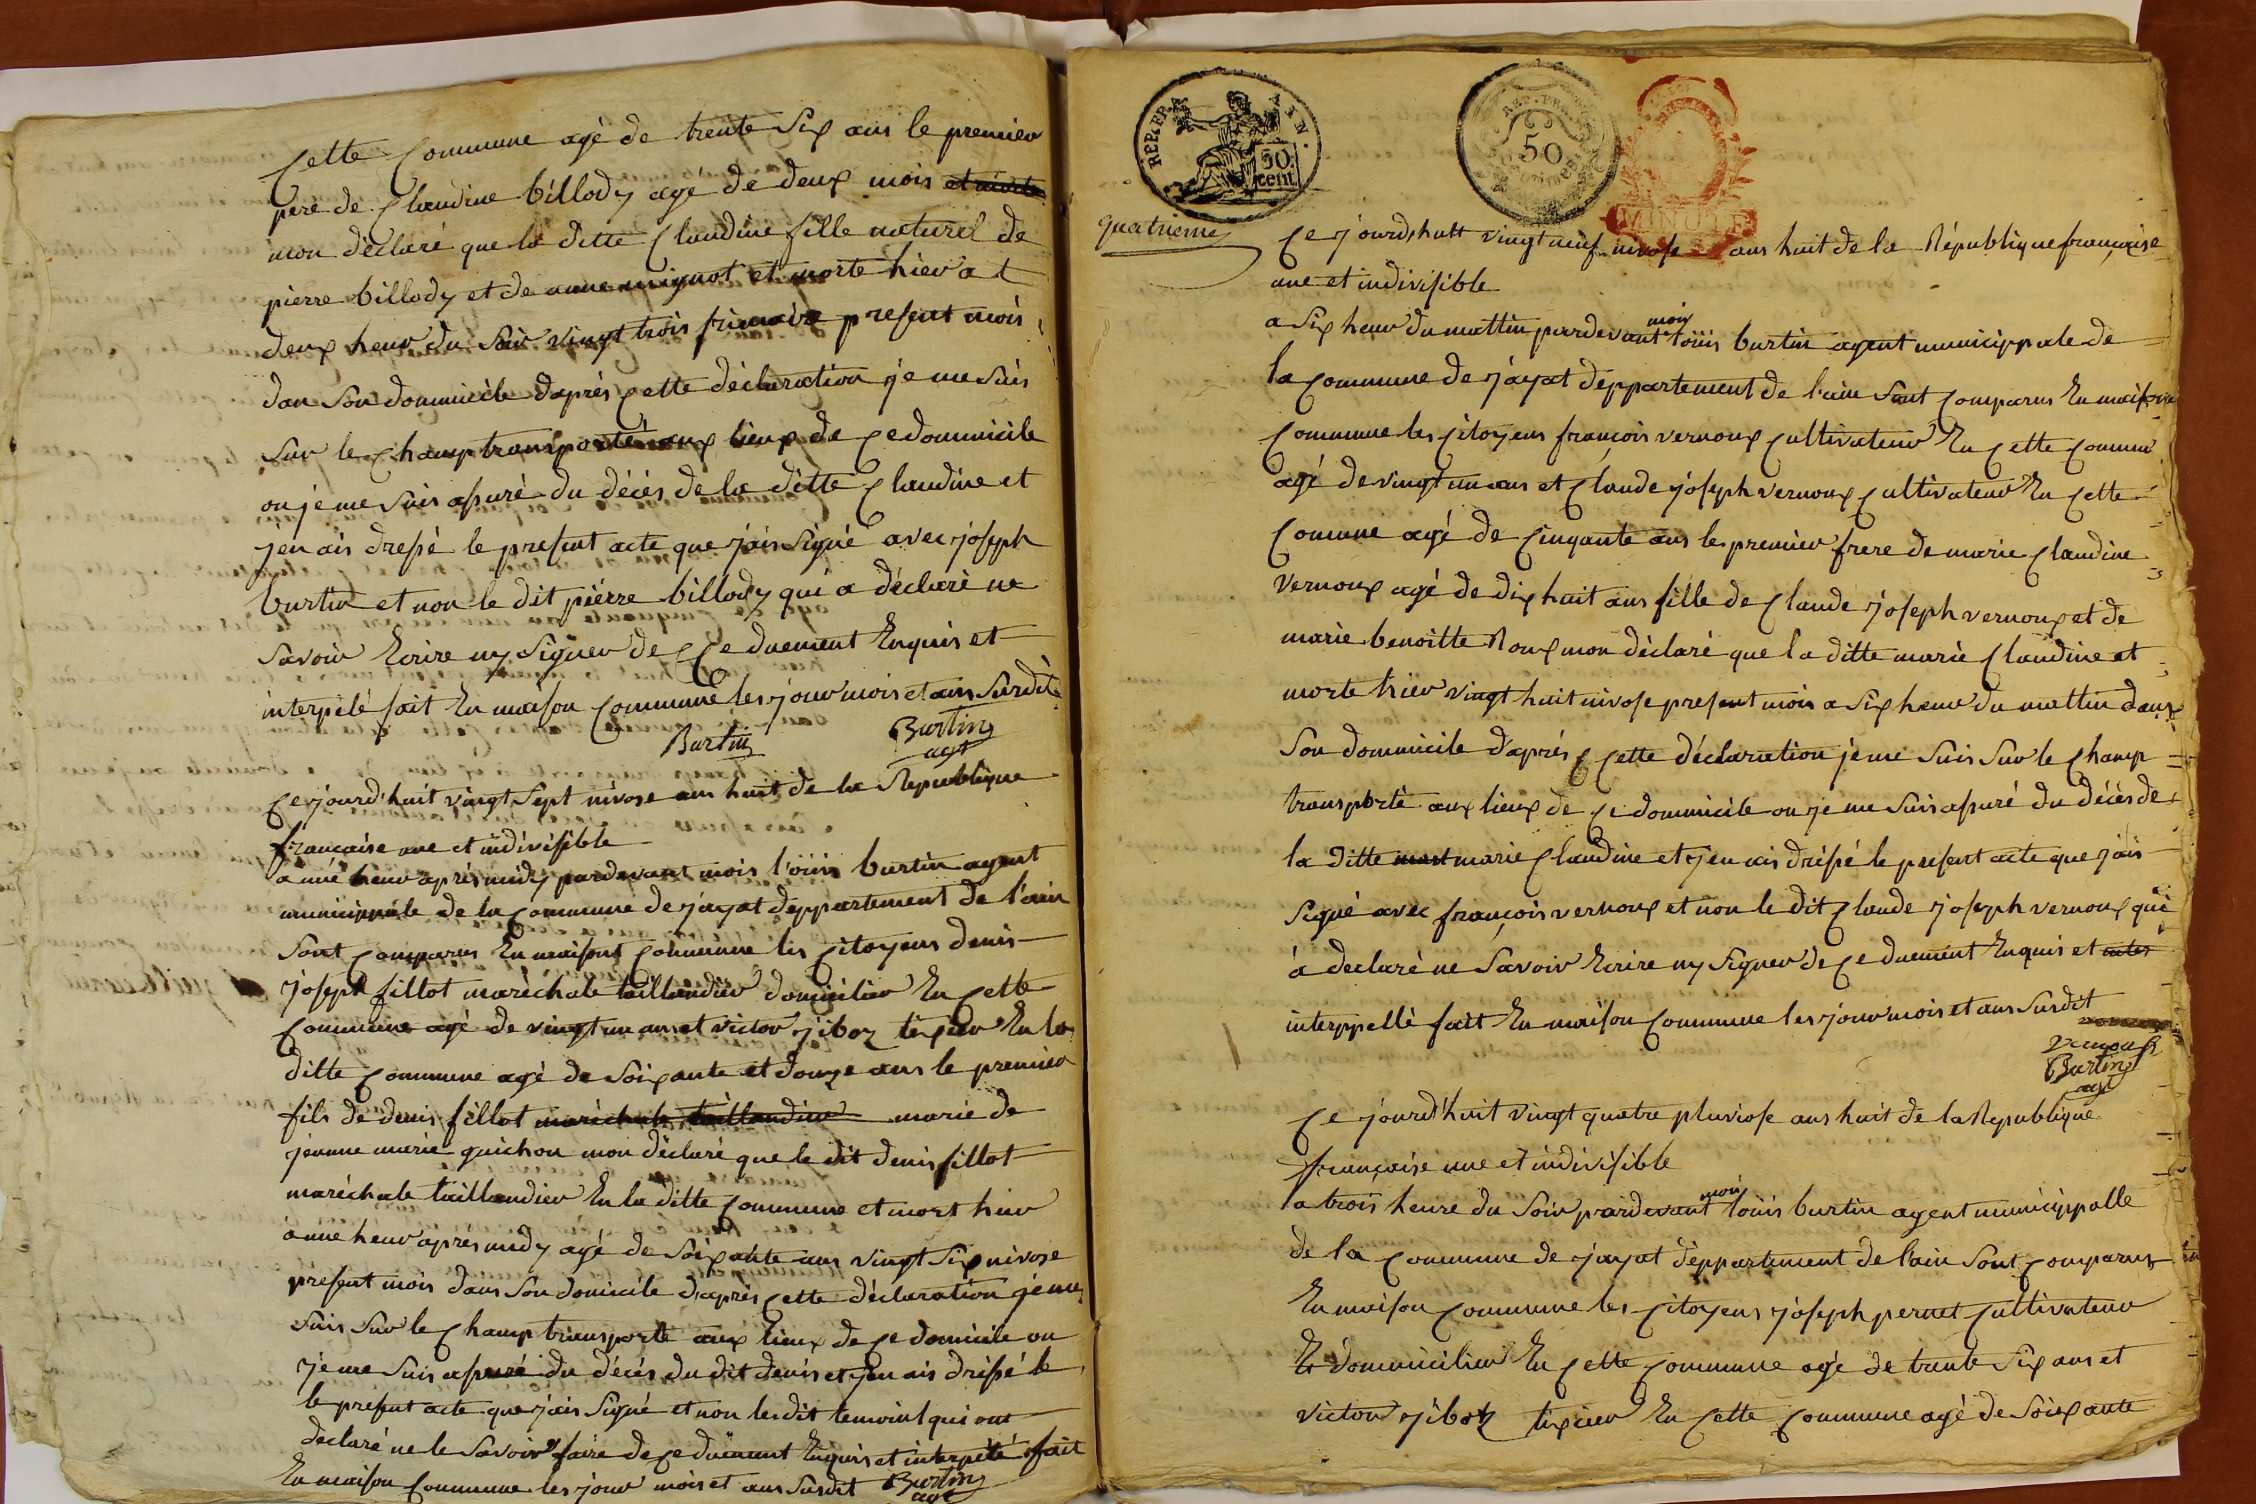 Cette Commune agé de trente Six ans le premier
pere de Claudine billody age de deux mois et morte
mon déclaré que la ditte Claudine fille naturel de
pierre billody et de anne mignot et morte hier a t
deux heur du Soir vingt trois frimaire present mois
dan Son dommicile daprés Cette déclaration je me Suis
Sur le Champ transporté aux lieux de Ce dommicile
ou je me Suis asuré du décés de la ditte Claudine et
jen ais dresé le present acte que jais Signé avec joseph
burtin et non le dit piérre billody qui a déclaré ne
Savoir Ecrire ny Signer de Ce duement Enquis et
interpélé fait En maison Commune les jour mois et ans Susdit
Burtin Burtin
agt
Ce jourd'huit vingt Sept nivose ans huit de la Republique
francaise une et indivisible
a une heur aprés midy pardevant mois l'ouis burtin agent
municippale de la Commune de jayat deppartement de l'ain
Sont Comparus En maison Commune les Citoyens denis
joseph fillot maréchale taillandier domicilier En Cette
Commune agé de vingt un ans et victor jiboz tixier En la
ditte Commune agé de Soixante et douze ans le premier
fils de denis fillot maréchale taillandier marie de
jeanne marie guichon mon déclaré que le dit denis fillot
maréchale taillandier En la ditte Commune et mort hier
a une heur aprés midy agé de Soixante ans vingt Six nivose
present mois dans Son domicile d'aprés Cette déclaration je me
Suis Sur le Champ transporté aux lieux de Ce domicile ou
je me Suis asuré du décés du dit denis et jen ais drésé le
le present acte que jais Signé et non lesdit temoins qui ont
declaré ne le Savoir faire de Ce duement Enquis et interpélé fait
En maison Commune les jour mois et ans Susdit Burtin
agt
REP. FRA. 50. cent.
REP. FRA. 50
MINUTE
quatrieme
Ce jourd,huit vingt neuf nivose ans huit de la République française
une et indivisible
mois
a Six heur du mattin pardevant loüis burtin agent municippale de
la Commune de jayat déppartement de l'ain Sont Comparus En maison
Commune les Citoyens françois vernoux Cultivateur En Cette Commun
agé de vingt un ans et Claude joseph vernoux Cultivateur En Cette
Comune agé de Cinquante ans le premier frere de marie Claudine
Vernoux agé de dix huit ans fille de Claude joseph vernoux et de
marie benoitte Roux mon déclaré que la ditte marie Claudine et
morte hier vingt huit nivose present mois a Six heur du mattin dans
Son dommicile d'aprés Cette déclaration je me Suis Sur le Champ
transporté aux lieux de Ce dommicile ou je me Suis asuré du décés de
la ditte mart marie Claudine et jen ais drésé le present acte que jais
Signé avec françois vernoux et non le dit Claude joseph vernoux qui
à declaré ne Savoir Ecrire ny Signer de Ce duement Enquis et inter
interppellé fait En maison Commune les jour mois et ans Susdit
vernoux
Burtin
agt
Ce jourd'huit vingt quatre pluviose ans huit de la Republique
françaize une et indivisible
mois
a trois heure du Soir pardevant loüis burtin agent municippalle
de la Commune de jayat déppartement de l'ain Sont Comparus
En maison Commune les Citoyens joseph pernet Cultivateur
Et dommicilier En Cette Commune agé de trente Six ans et
victor jiboz tixier En Cette Commune agé de Soixante